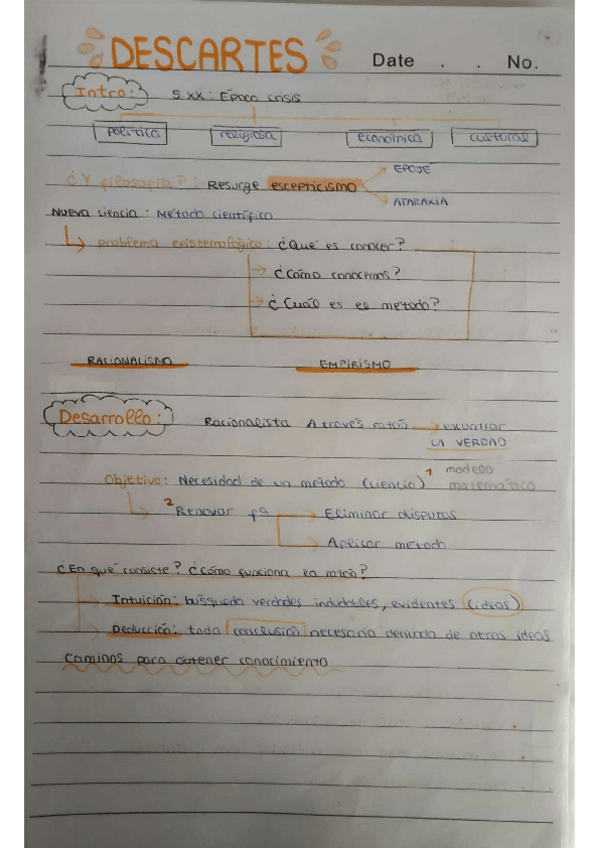 DESCARTES Date . . No.
Intro: S.XX: Época crisis
política religiosa económica cultural
EPOJÉ
¿Y filosofía?: Resurge escepticismo
ATARAXIA
Nueva ciencia: Método científico
problema epistemológico: ¿Qué es conocer?
¿Cómo conocemos?
¿Cuál es el método?
RACIONALISMO EMPIRISMO
Desarrollo: Racionalista A través razón → encontrar
LA VERDAD
Objetivo: Necesidad de un método (ciencia) 1 modelo
matemático
2 Renovar fª → Eliminar disputas
Aplicar método
¿En qué consiste? ¿Cómo funciona la razón?
Intuición: búsqueda verdades indudables, evidentes (ideas)
Deducción: toda conclusión necesaria derivada de otras ideas
Caminos para obtener conocimiento